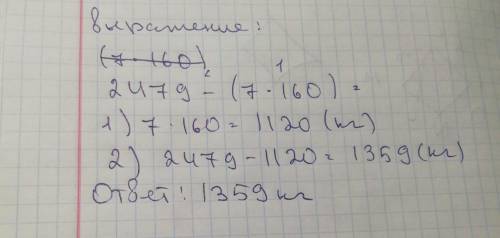 выражение:
(7 · 160)
2479 - (7 · 160) =
1) 7 · 160 = 1120 (кг)
2) 2479 - 1120 = 1359 (кг)
Ответ: 1359 кг